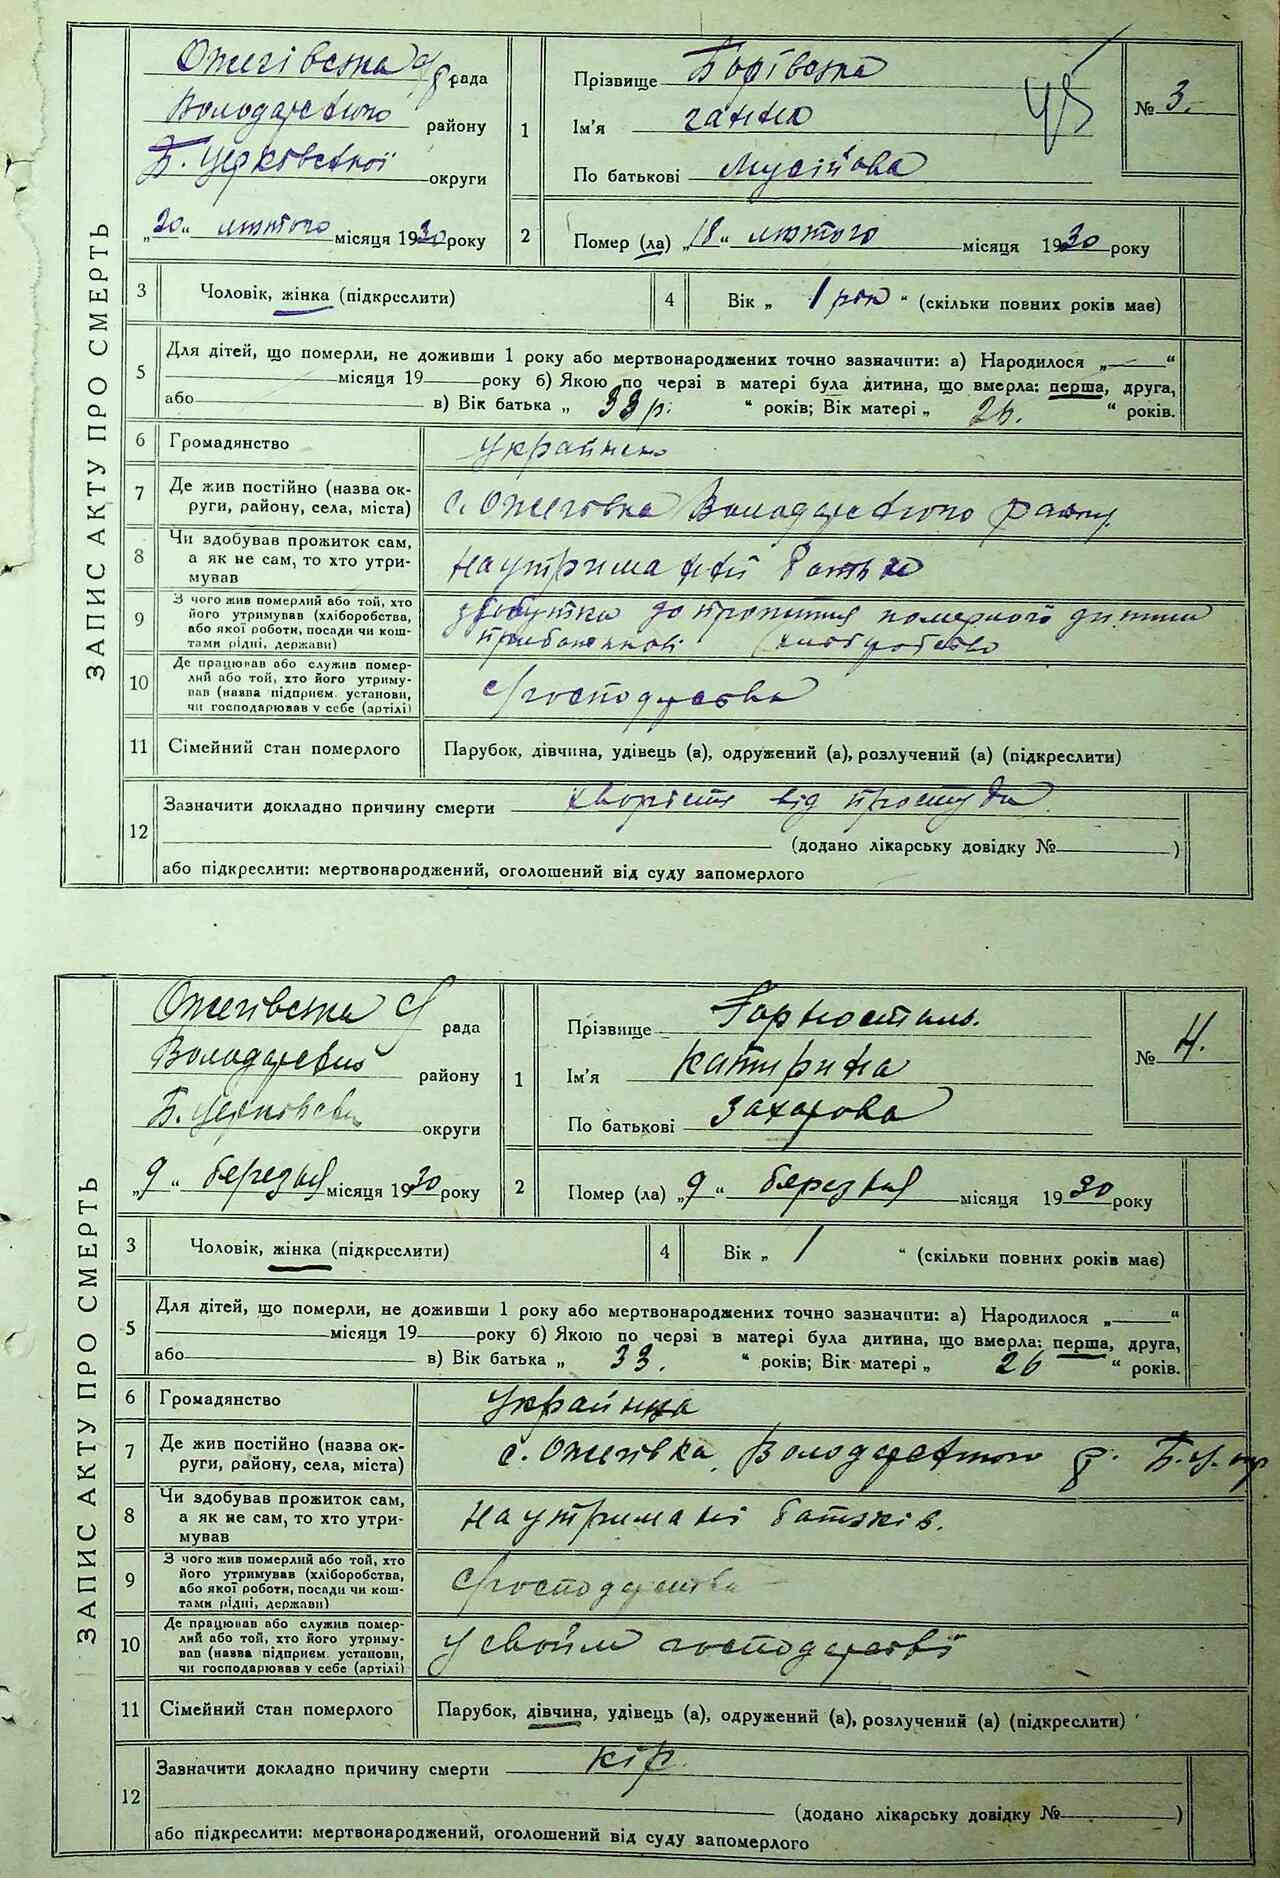 ЗАПИС АКТУ ПРО СМЕРТЬ
Ожегівська с/р рада
Володарського району
Б. Церківської округи
„20“ лютого місяця 1930 року
1
Прізвище Борівська
Ім'я Ганна
По батькові Мусійова
45
№ 3.
2
Помер (ла) „18“ лютого місяця 1930 року
3
Чоловік, жінка (підкреслити)
4
Вік „ 1 рок “ (скільки повних років має)
5
Для дітей, що померли, не доживши 1 року або мертвонароджених точно зазначити: а) Народилося „—“
місяця 19 року б) Якою по черзі в матері була дитина, що вмерла: перша, друга,
або в) Вік батька „ 33 р. “ років; Вік матері „ 26. “ років.
6
Громадянство
7
Де жив постійно (назва ок-
руги, району, села, міста)
с. Ожегівка Володарського району
8
Чи здобував прожиток сам,
а як не сам, то хто утри-
мував
на утриманні батька
9
З чого жив померлий або той, хто
його утримував (хліборобства,
або якої роботи, посади чи кош-
тами рідні, держави)
до померлого
10
Де працював або служив помер-
лий або той, хто його утриму-
вав (назва підприєм. установи,
чи господарював у себе (артілі)
с/господарства
11
Сімейний стан померлого
Парубок, дівчина, удівець (а), одружений (а), розлучений (а) (підкреслити)
12
Зазначити докладно причину смерти від простуди
(додано лікарську довідку № )
або підкреслити: мертвонароджений, оголошений від суду запомерлого
ЗАПИС АКТУ ПРО СМЕРТЬ
Ожегівська с/ рада
Володарський району
Б. Церковська округи
„9“ березня місяця 1930 року
1
Прізвище Горносталь.
Ім'я Катирина
По батькові Захарова
№ 4.
2
Помер (ла) „9“ березня місяця 1930 року
3
Чоловік, жінка (підкреслити)
4
Вік „ 1 “ (скільки повних років має)
5
Для дітей, що померли, не доживши 1 року або мертвонароджених точно зазначити: а) Народилося „—“
місяця 19 року б) Якою по черзі в матері була дитина, що вмерла: перша, друга,
або в) Вік батька „ 33. “ років; Вік матері „ 26 “ років.
6
Громадянство українка
7
Де жив постійно (назва ок-
руги, району, села, міста)
с. Ожегівка, Володарського р. Б.Ц. окр
8
Чи здобував прожиток сам,
а як не сам, то хто утри-
мував
на утримані батьків.
9
З чого жив померлий або той, хто
його утримував (хліборобства,
або якої роботи, посади чи кош-
тами рідні, держави)
с/господарства
10
Де працював або служив помер-
лий або той, хто його утриму-
вав (назва підприєм. установи,
чи господарював у себе (артілі)
у свойм господарстві
11
Сімейний стан померлого
Парубок, дівчина, удівець (а), одружений (а), розлучений (а) (підкреслити)
12
Зазначити докладно причину смерти кір.
(додано лікарську довідку № )
або підкреслити: мертвонароджений, оголошений від суду запомерлого